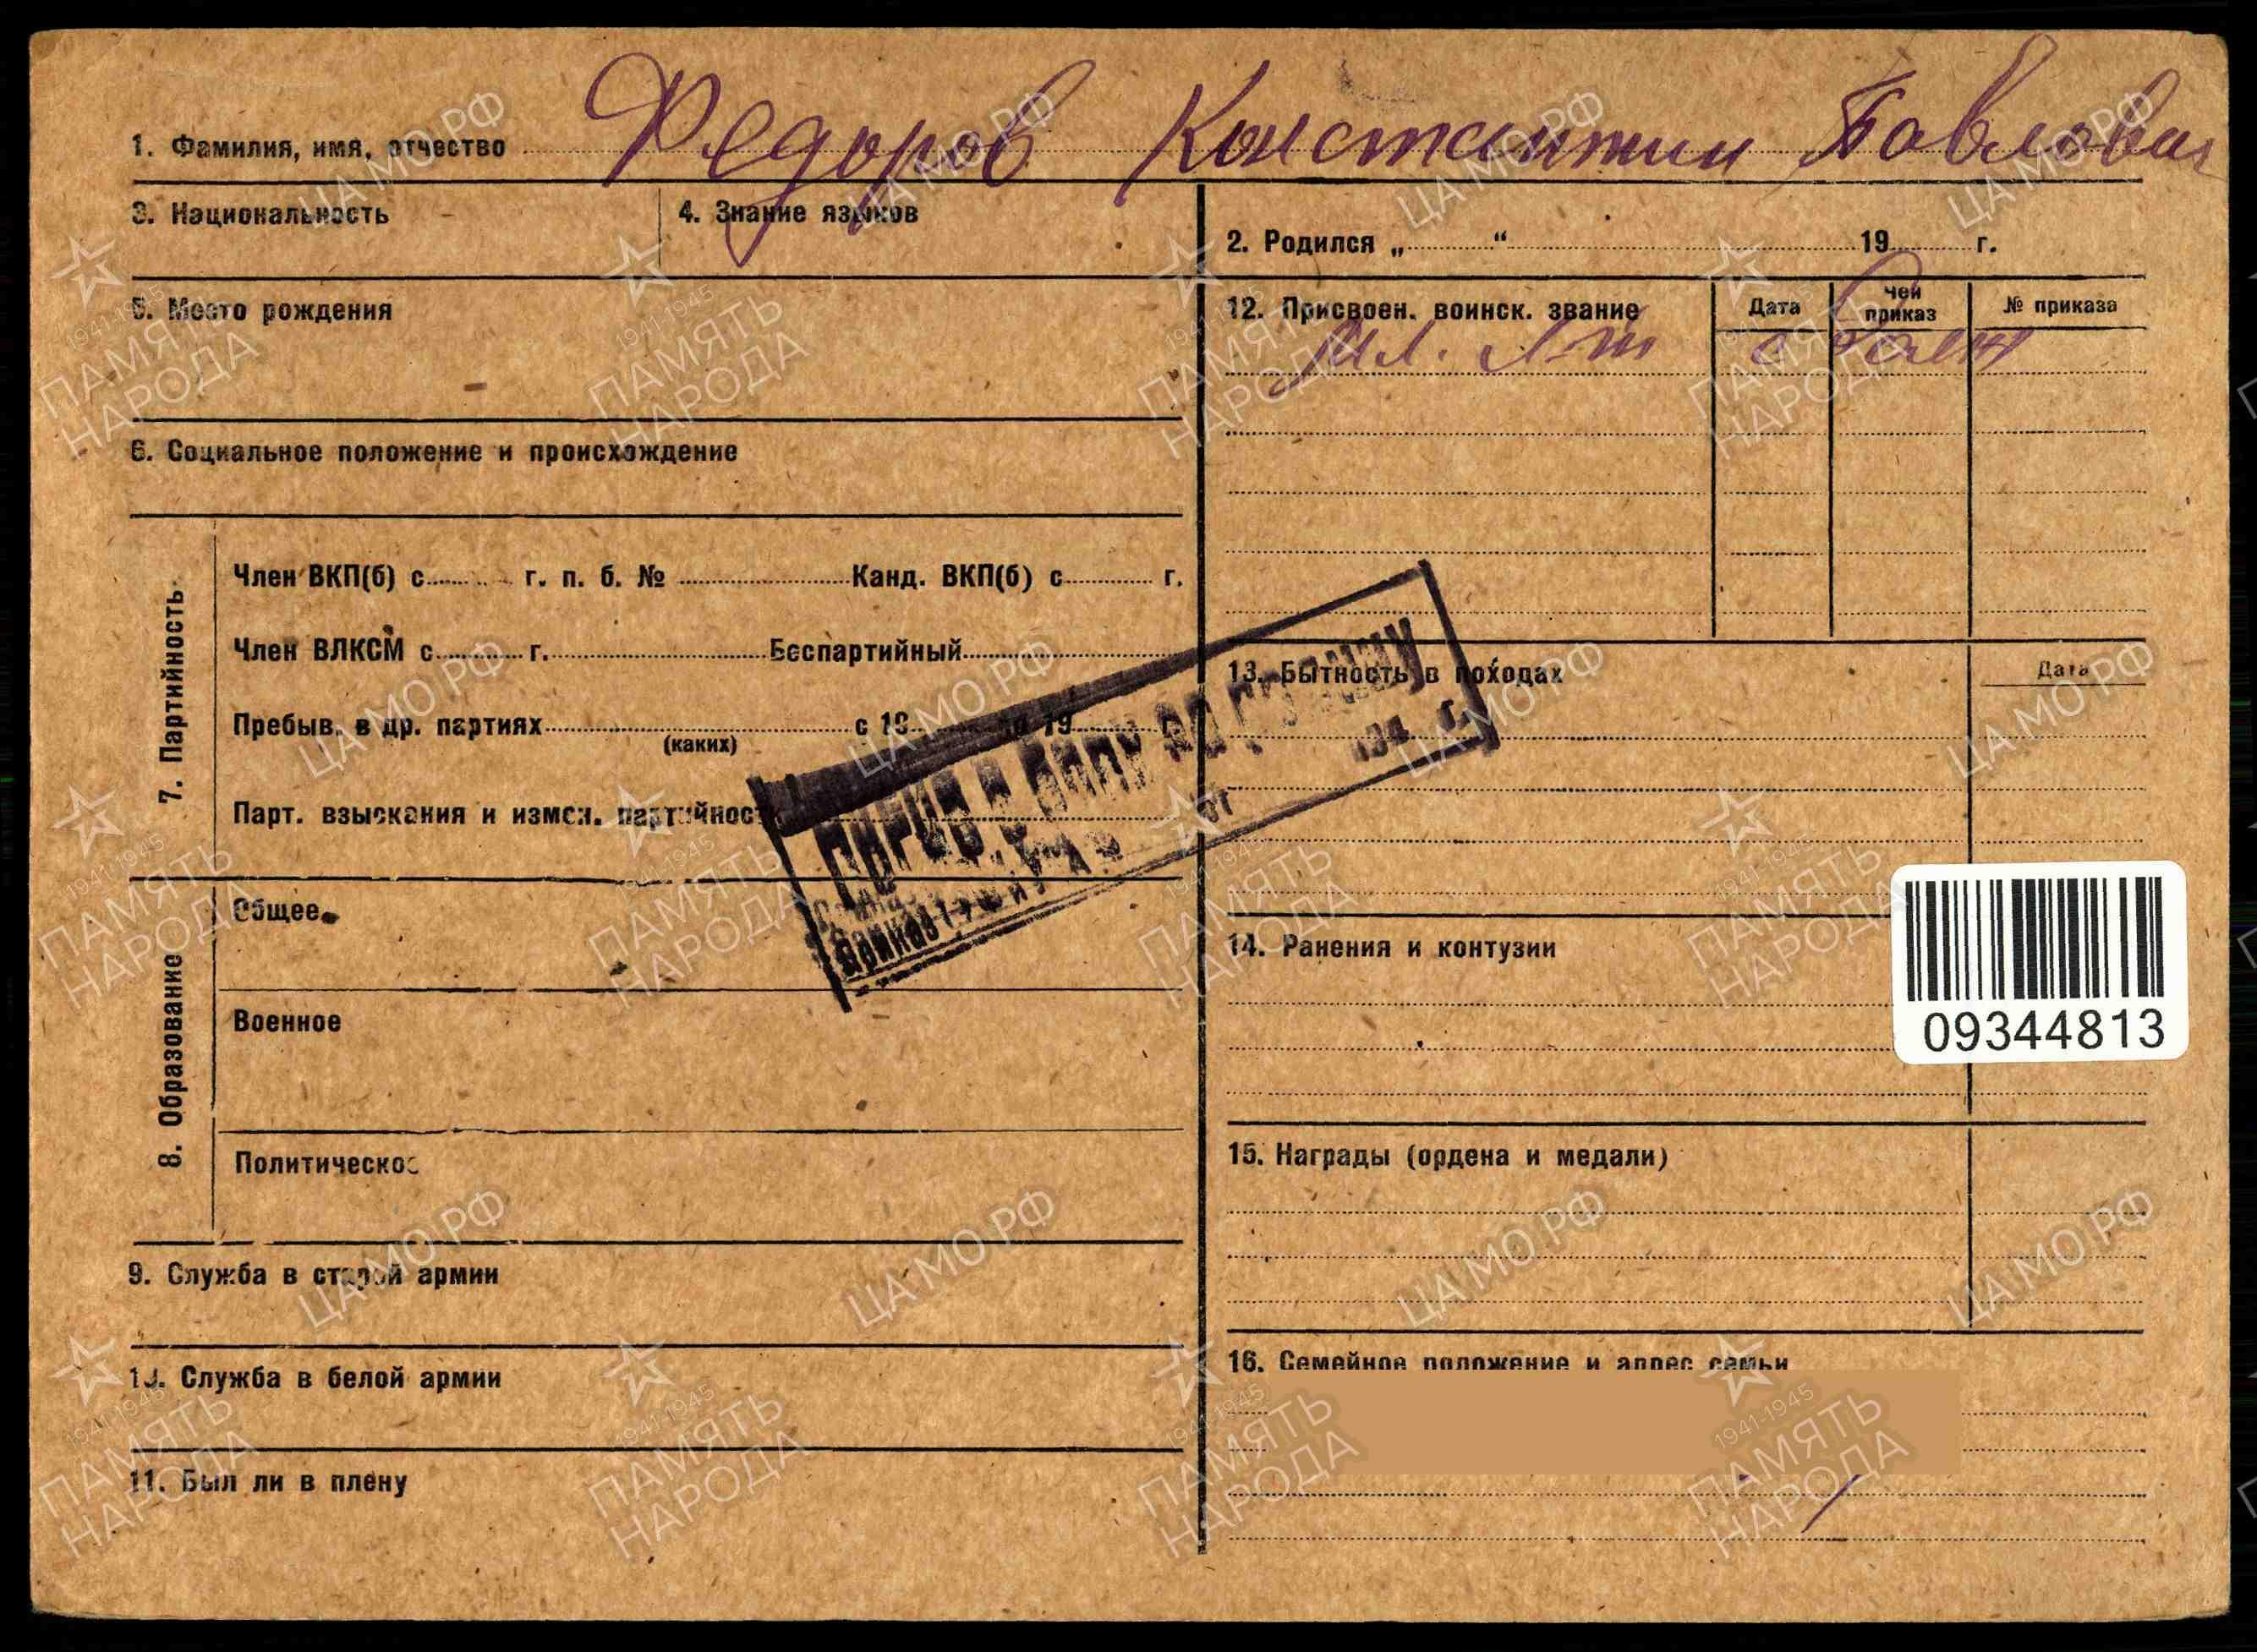 1. Фамилия, имя, отчество Федоров Константин Павлович
3. Национальность
4. Знание языков
2. Родился „ “ 19 г.
5. Место рождения
6. Социальное положение и происхождение
7. Партийность
Член ВКП(б) с г. п. б. № Канд. ВКП(б) с г.
Член ВЛКСМ с г. Беспартийный
Пребыв. в др. партиях с 19 19
(каких)
Парт. взыскания и измен. партийност
8. Образование
Общее
Военное
Политическое
9. Служба в старой армии
10. Служба в белой армии
11. Был ли в плену
12. Присвоен. воинск. звание
Дата
Чей приказ
№ приказа
Мл. л-т
13. Бытность в походах
Дата
194 г.
14. Ранения и контузии
09344813
15. Награды (ордена и медали)
16. Семейное положение и адрес семьи
ЦА МО.РФ
1941-1945
ПАМЯТЬ
НАРОДА